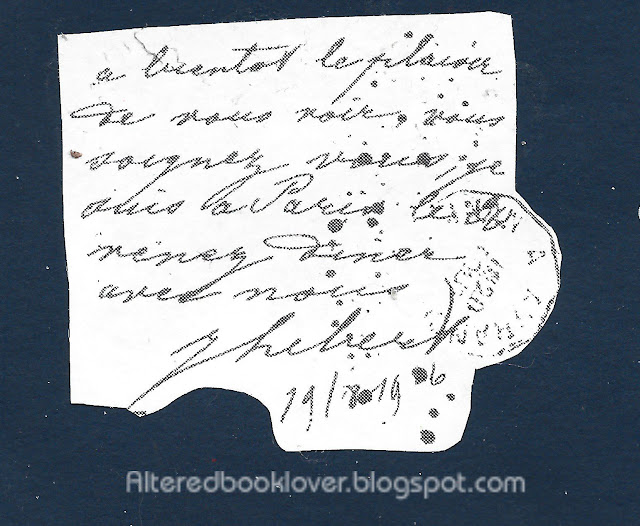 a bientot le plaisir
de vous voir, vous
soignez vous, je
suis a Paris le
venez diner
avec nous
hebert
19/ 19 6
Alteredbooklover.blogspot.com